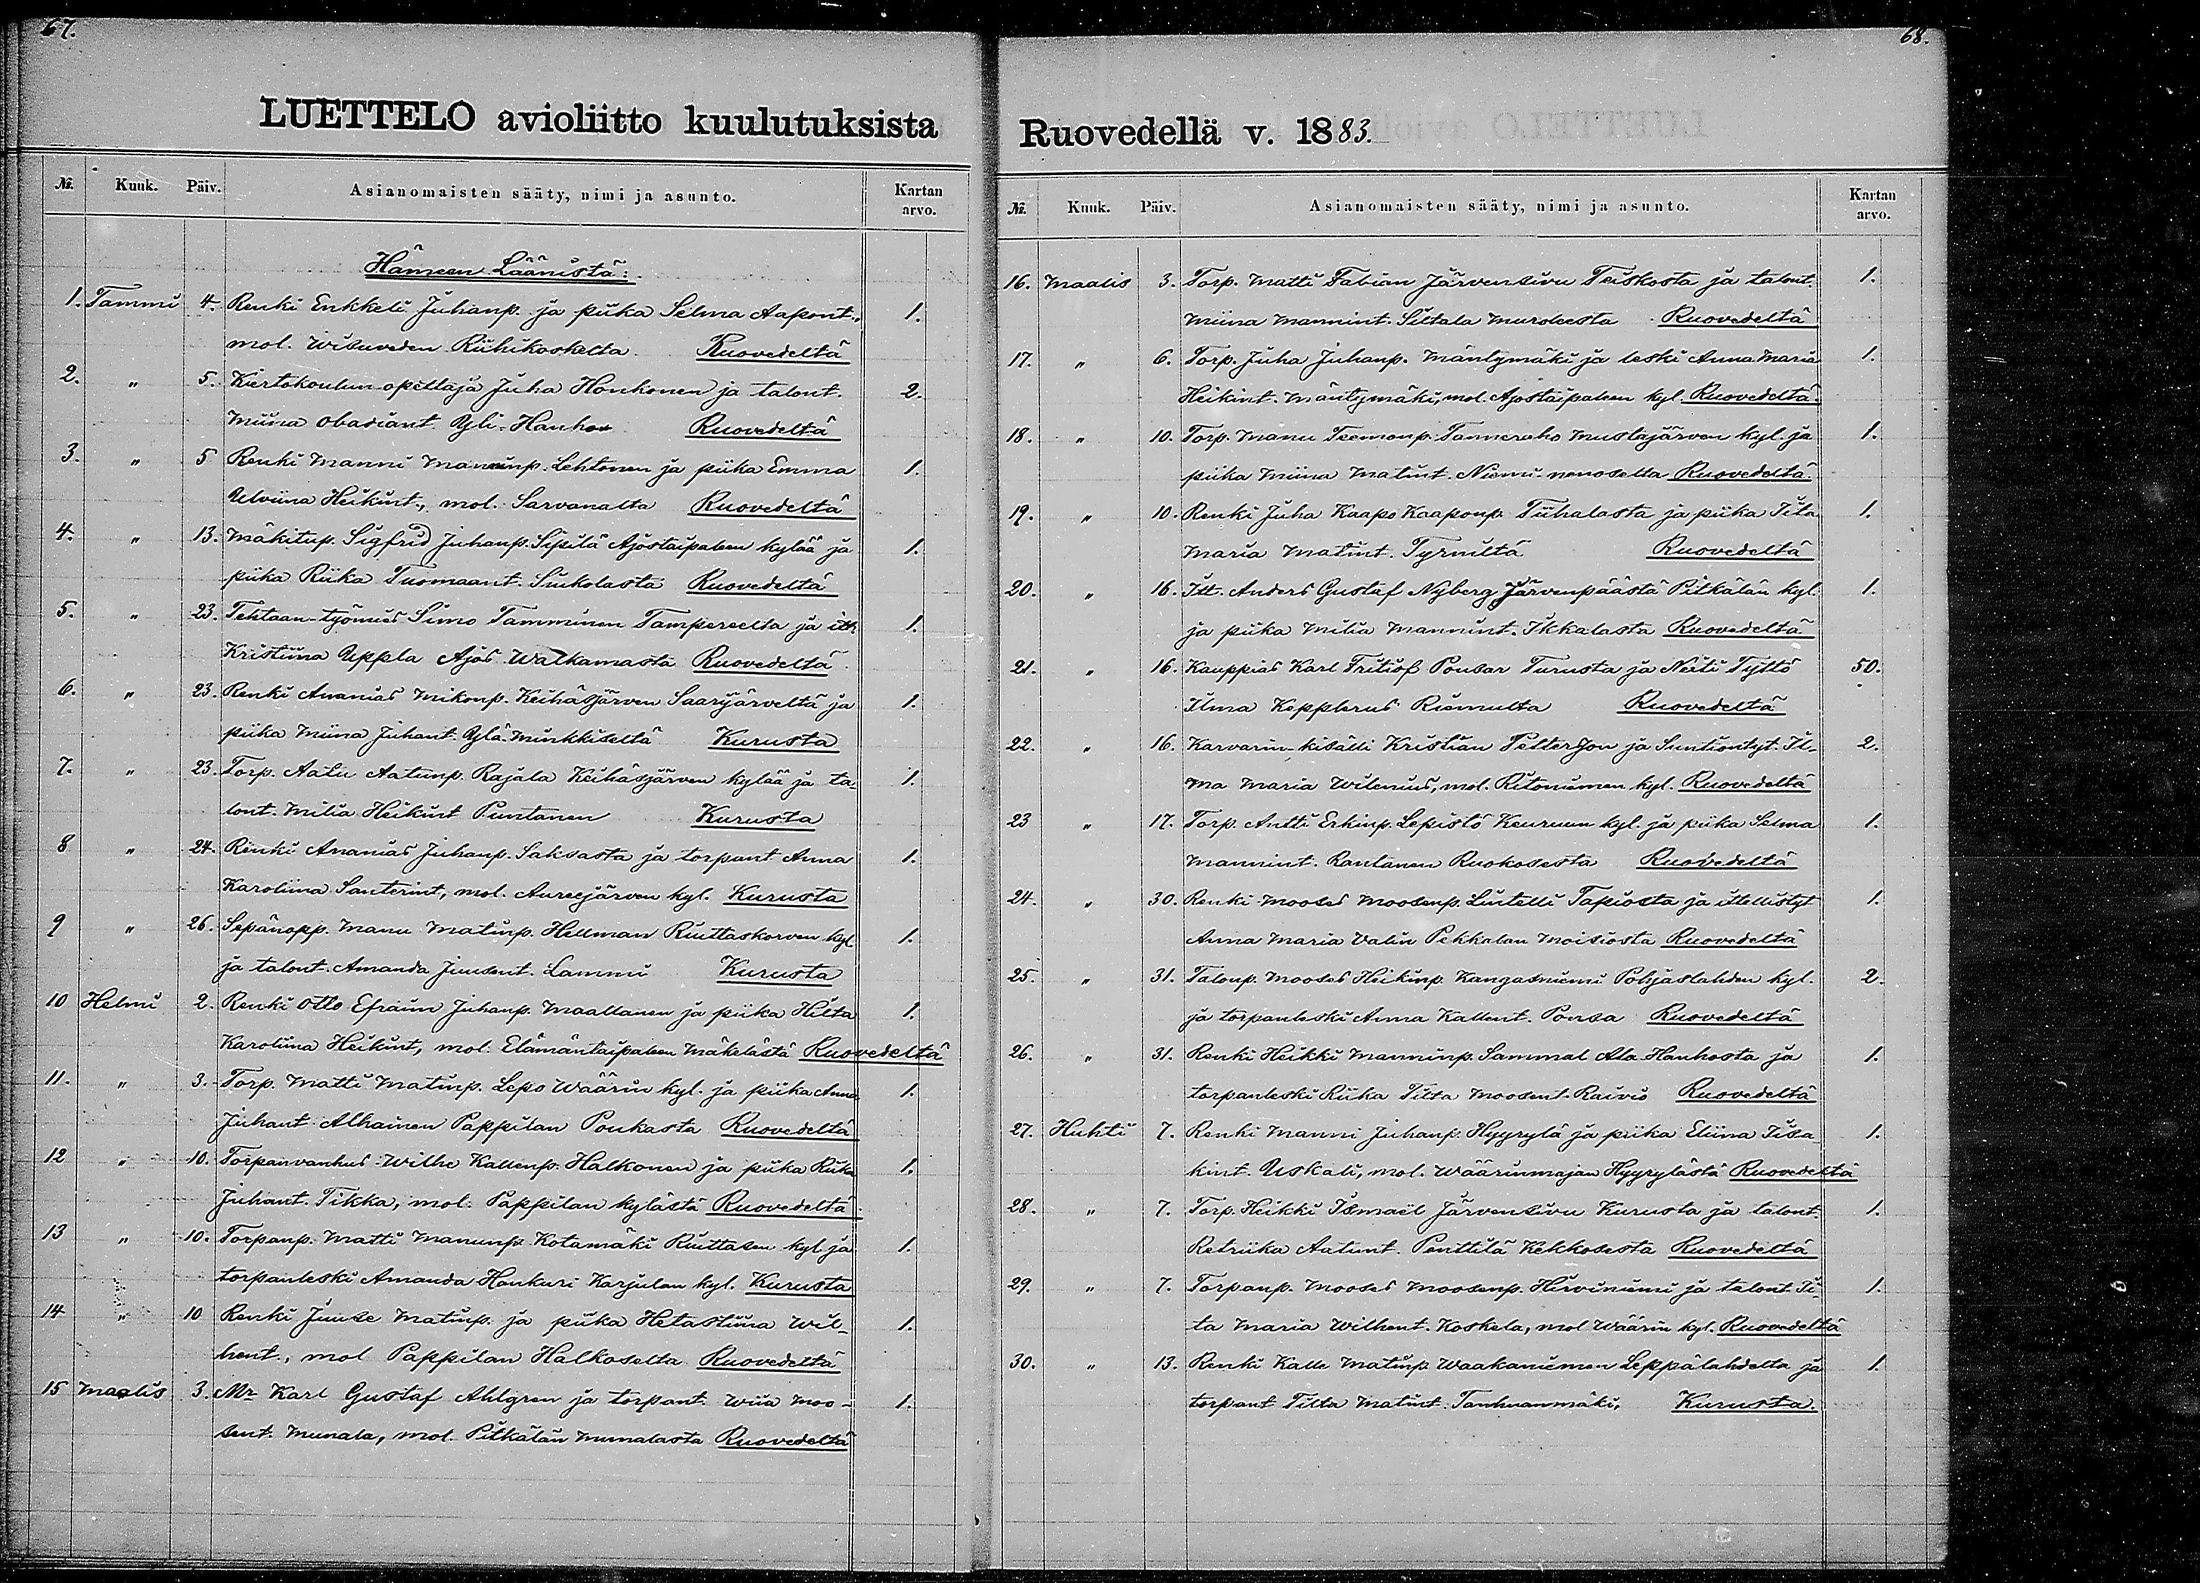 67.
LUETTELO avioliitto kuulutuksista
№. Kuuk. Päiv. Asianomaisten sääty, nimi ja asunto. Kartan arvo.
Hämeen Läänistä:
1. Tammi 4. Renki Enkkeli Juhanp. ja piika Selma Aapont., 1.
mol. Wisuveden Riihikoskelta. Ruovedeltä
2. " 5. Kiertokoulun-opettaja Juha Honkonen ja talont. 2.
Miina Obadiant. Yli-Hanho Ruovedeltä
3. " 5 Renki Manni Manninp. Lehtonen ja piika Emma 1.
Ulviina Heikint., mol. Sarvanalta Ruovedeltä
4. " 13. Mäkitup. Sigfrid Juhanp. Sipilä Ajostaipaleen kylää ja 1.
piika Riika Tuomaant. Siukolasta Ruovedeltä
5. " 23. Tehtaan-työmies Simo Tamminen Tampereelta ja itt. 1.
Kristiina Uppla Ajos Walkamasta Ruovedeltä
6. " 23. Renki Ananias Mikonp. Keihäsjärven Saarijärveltä ja 1.
piika Miina Juhant. Ylä-Minkkiseltä Kurusta
7. " 23. Torp. Aatu Aatunp. Rajala Keihäsjärven kylää ja ta- 1.
lont. Milia Heikint Puntanen Kurusta
8 " 24. Renki Ananias Juhanp. Saksasta ja torpant Anna 1.
Karoliina Santerint, mol. Aureejärven kyl. Kurusta
9 " 26. Sepänopp. Manu Matinp. Hellman Riuttaskorven kyl. 1.
ja talont. Amanda Juusent. Lammi Kurusta
10 Helmi 2. Renki Otto Efraim Juhanp. Maaltanen ja piika Hilta 1.
Karoliina Heikint, mol. Elämäntaipaleen Mäkelästä Ruovedeltä
11. " 3. Torp. Matti Matinp. Lepo Wäärin kyl. ja piika Anna 1.
Juhant Alhainen Pappilan Poukasta Ruovedeltä
12 " 10. Torpanvanhus Wilhe Kallenp. Halkonen ja piika Riika 1.
Juhant. Tikka, mol. Pappilan kylästä Ruovedeltä.
13 " 10. Torpanp. Matti Manunp. Kotamäki Riuttasen kyl ja 1.
torpanleski Amanda Hankuri Karjulan kyl. Kurusta
14 " 10 Renki Juuse Matinp. ja piika Hetastiina Wil- 1.
hent., mol Pappilan Halkoselta Ruovedeltä
15 Maalis 3. Mr Karl Gustaf Ahlgren ja torpant. Wiia Moo- 1.
sent. Munala, mol. Pitkälän Munalasta Ruovedeltä
68.
Ruovedellä v. 1883.
№. Kuuk. Päiv. Asianomaisten sääty, nimi ja asunto. Kartan arvo.
16. Maalis 3. Torp. Matti Fabian Järvensivu Teiskosta ja talont. 1.
Miina Mannint. Siltala Muroleesta Ruovedeltä
17. " 6. Torp. Juha Juhanp. Mäntymäki ja leski Anna Maria 1.
Heikint. Mäntymäki, mol. Ajostaipaleen kyl. Ruovedeltä.
18. " 10. Torp. Manu Teemonp. Tanneraho Mustajärven kyl. ja 1.
piika Miina Matint. Niemi-nenoselta Ruovedeltä.
19. " 10. Renki Juha Kaapo Kaaponp. Tiihalasta ja piika Iita 1.
Maria Matint. Tyrniltä Ruovedeltä
20. " 16. Itt. Anders Gustaf Nyberg Järvenpäästä Pitkälän kyl. 1.
ja piika Milia Mannint. Ikkalasta Ruovedeltä
21. " 16. Kauppias Karl Fritiof Ponsar Turusta ja Neiti Tyttö 50.
Ilma Kepplerus Riemulta Ruovedeltä
22. " 16. Karvarin-kisälli Kristian Petterson ja Suntiontyt. Il- 2.
ma Maria Wilenius, mol. Ritoniemen kyl. Ruovedeltä
23 " 17. Torp. Antti Erkinp. Lepistö Keuruun kyl. ja piika Selma 1.
Mannint. Rantanen Ruokosesta Ruovedeltä
24. " 30. Renki Mooses Moosenp. Lintelli Tapiosta ja itsellistyt 1.
Anna Maria Valin Pekkalan Moisiosta Ruovedeltä
25. " 31. Talonp. Mooses Heikinp. Kangasniemi Pohjaslahden kyl. 2.
ja torpanleski Anna Kallent. Ponsa Ruovedeltä
26. " 31. Renki Heikki Manninp. Sammal Ala-Hanhosta ja 1.
torpanleski Riika Titta Moosent. Raivio Ruovedeltä
27. Huhti 7. Renki Manni Juhanp. Hyyrylä ja piika Eliina Iisa 1.
kint. Uskali, mol. Wäärinmajan Hyyrylästä Ruovedeltä
28. " 7. Torp. Heikki Ismaël Järvensivu Kurusta ja talont. 1.
Retriika Aatunt. Penttilä Kekkosesta Ruovedeltä
29. " 7. Torpanp. Mooses Moosenp. Hirviniemi ja talont Ii- 1.
ta Maria Wilhent. Koskela, mol Wäärin kyl. Ruovedeltä
30. " 13. Renki Kalle Matinp. Waakaniemen Leppälahdelta ja 1.
torpant Tilta Matint. Tanhuanmäki, Kurusta.